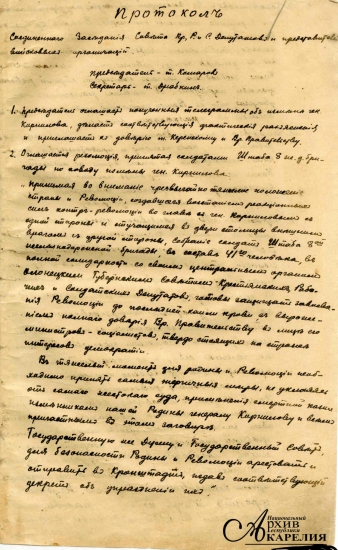 Протоколъ
Соединеннаго Заседания Совета Кр., Р. и С. Депутатовъ и представителей
войсковыхъ организацiй.
Председатель – т. Комаровъ
Секретарь – т.
1. Председатель оглашаетъ полученныя телеграммы объ измене ген.
Корнилова, даетъ соответствующiя фактическiя разъясненiя
и приглашаетъ къ доверiю т. Керенскому и Вр. Правительству.
2. Оглашается резолюцiя, принятая солдатами Штаба 8 ж.д. бри-
гады по поводу измены ген. Корнилова.
"Принимая во вниманiе чрезвычайно тяжелое положенiе
страны и Революцiи, создавшееся возстанiем реакцiонныхъ
силъ контръ-революцiи во главе съ ген. Корниловымъ съ
одной стороны и стучащимся въ двери столицы внешнимъ
врагомъ съ другой стороны, собранiе солдатъ Штаба 8-ой
железнодорожной бригады, въ составе человека, въ
полной солидарности со своимъ центральнымъ органомъ
Олонецкимъ Губернскимъ Советомъ Крестьянскихъ, Рабо-
чихъ и Солдатскихъ Депутатовъ, готовы защищать завоева-
нiя Революцiи до последней капли крови съ выраже-
нiемъ полнаго доверiя Вр. Правительству въ лице его
министровъ-соцiалистовъ, твердо стоящихъ на страже
интересовъ демократiи.
Въ тяжелый моментъ для родины и Революцiи необ-
ходимо принять самыя энергичныя меры, не уклоняясь
отъ самаго жестокаго суда, применения смертной казни
изменникамъ нашей Родины генералу Корнилову и всемъ
причастнымъ въ этомъ заговоре.
Государственную же Думу и Государственный Советъ
для безопасности Родины и Революцiи арестовать и
отправить въ Кронштадтъ, издавъ соответствующiй
декретъ объ упраздненiи ихъ."
Национальный
АРХИВ
Республики
КАРЕЛИЯ